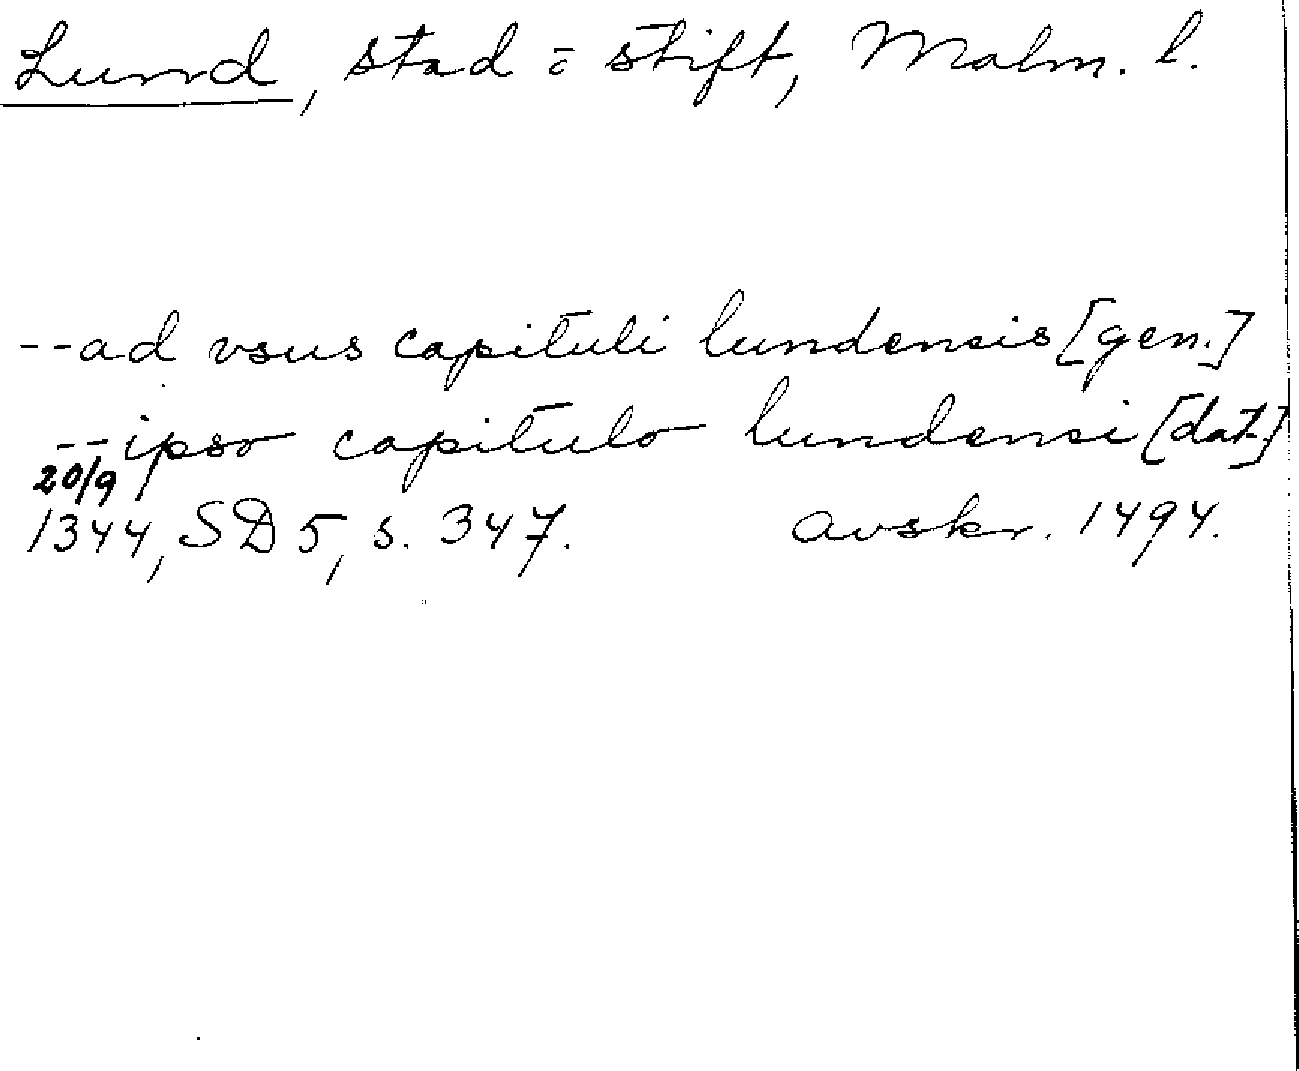 Lund, stad ō stift, Malm. l.
--ad vsus capituli lundensis [gen.]
--ipso capitulo lundensi [dat.]
20/9
1344, SD 5, s. 347. avskr. 1494.